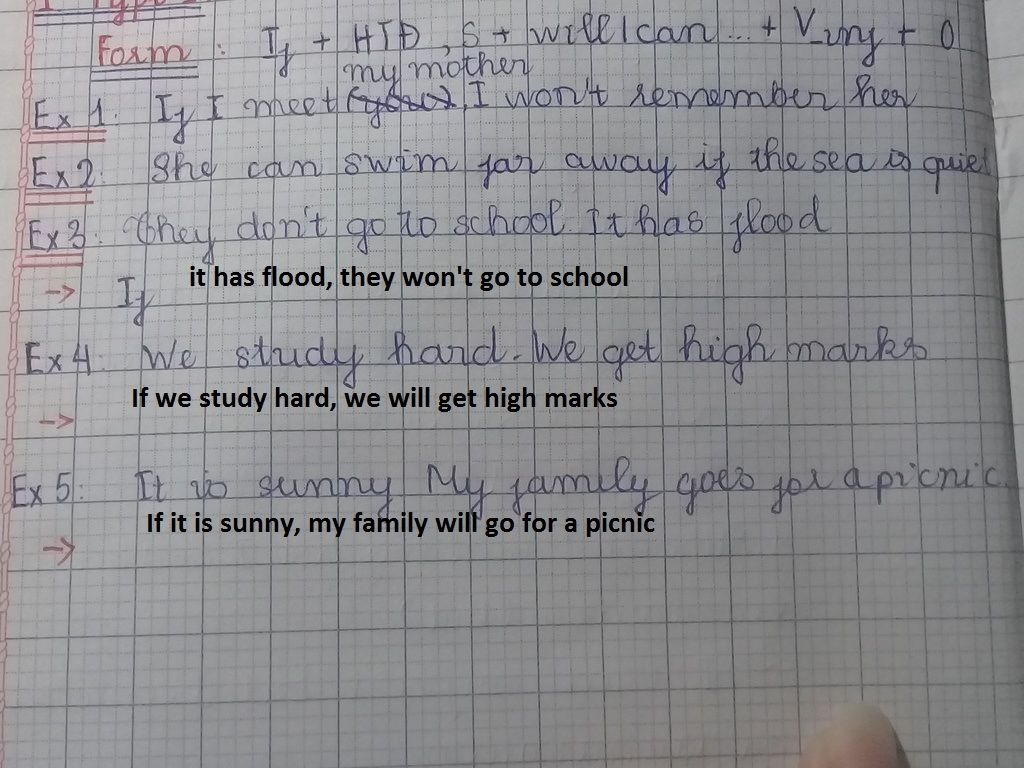 I Type
Form : If + HTĐ, S + will/can... + V_inf + O
my mother
Ex 1: If I meet , I won't remember her
Ex 2: She can swim far away if the sea is quiet
Ex 3: They don't go to school. It has flood
it has flood, they won't go to school
→ If
Ex 4: We study hard. We get high marks
If we study hard, we will get high marks
→
Ex 5: It is sunny. My family goes for a picnic.
If it is sunny, my family will go for a picnic
→